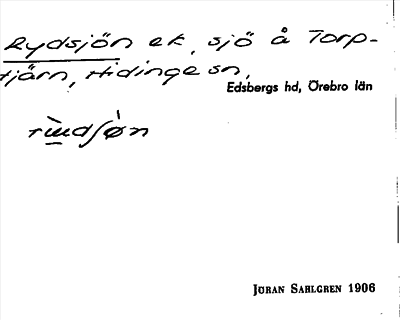 Rydsjön ek, sjö å Torp-
tjärn, Hidinge sn,
Edsbergs hd, Örebro län
JÖRAN SAHLGREN 1906